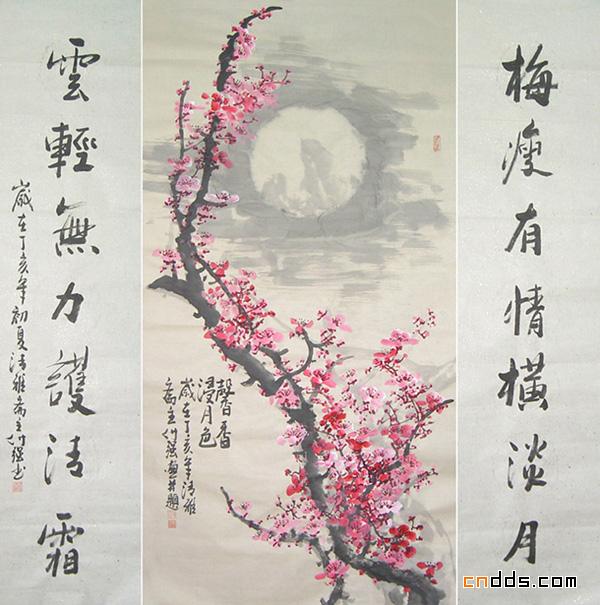 梅瘦有情橫淡月
馨香
浸月色
歲在丁亥年清雅
齋主付强畫并題
雲輕無力護清霜
歲在丁亥年初夏清雅齋主付强书
cndds.com